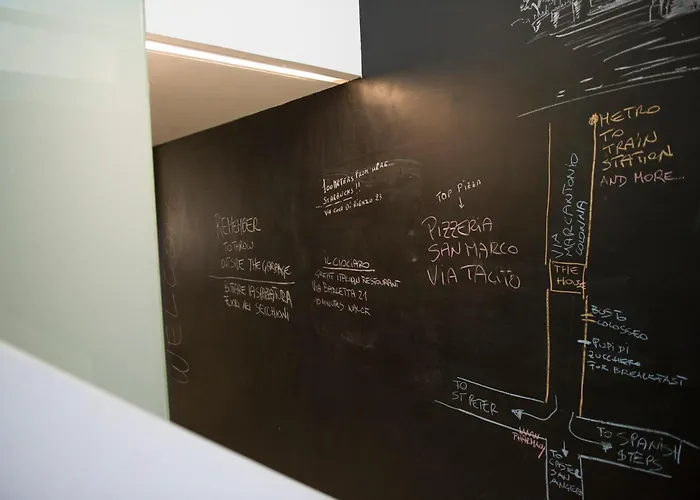 WELCOME
REMEMBER
TO THROW
OUTSIDE THE GARBAGE
BUTTARE LA SPAZZATURA
FUORI NEI SECCHIONI
100 METERS FROM HERE...
...STARBUCKS!!
VIA COLA DI RIENZO 23
IL CIOCIARO
GREAT ITALIAN RESTAURANT
VIA BARLETTA 21
10 MINUTES WALK
TOP PIZZA
PIZZERIA
SAN MARCO
VIA TACITO
METRO
TO
TRAIN
STATION
AND MORE...
VIA
MARCANTONIO
COLONNA
THE
HOUSE
BUS TO
COLOSSEO
PUPI DI
ZUCCHERO
FOR BREAKFAST
TO
ST PETER
PHARMACY
TO
CASTEL
SAN
ANGELO
TO SPANISH
STEPS